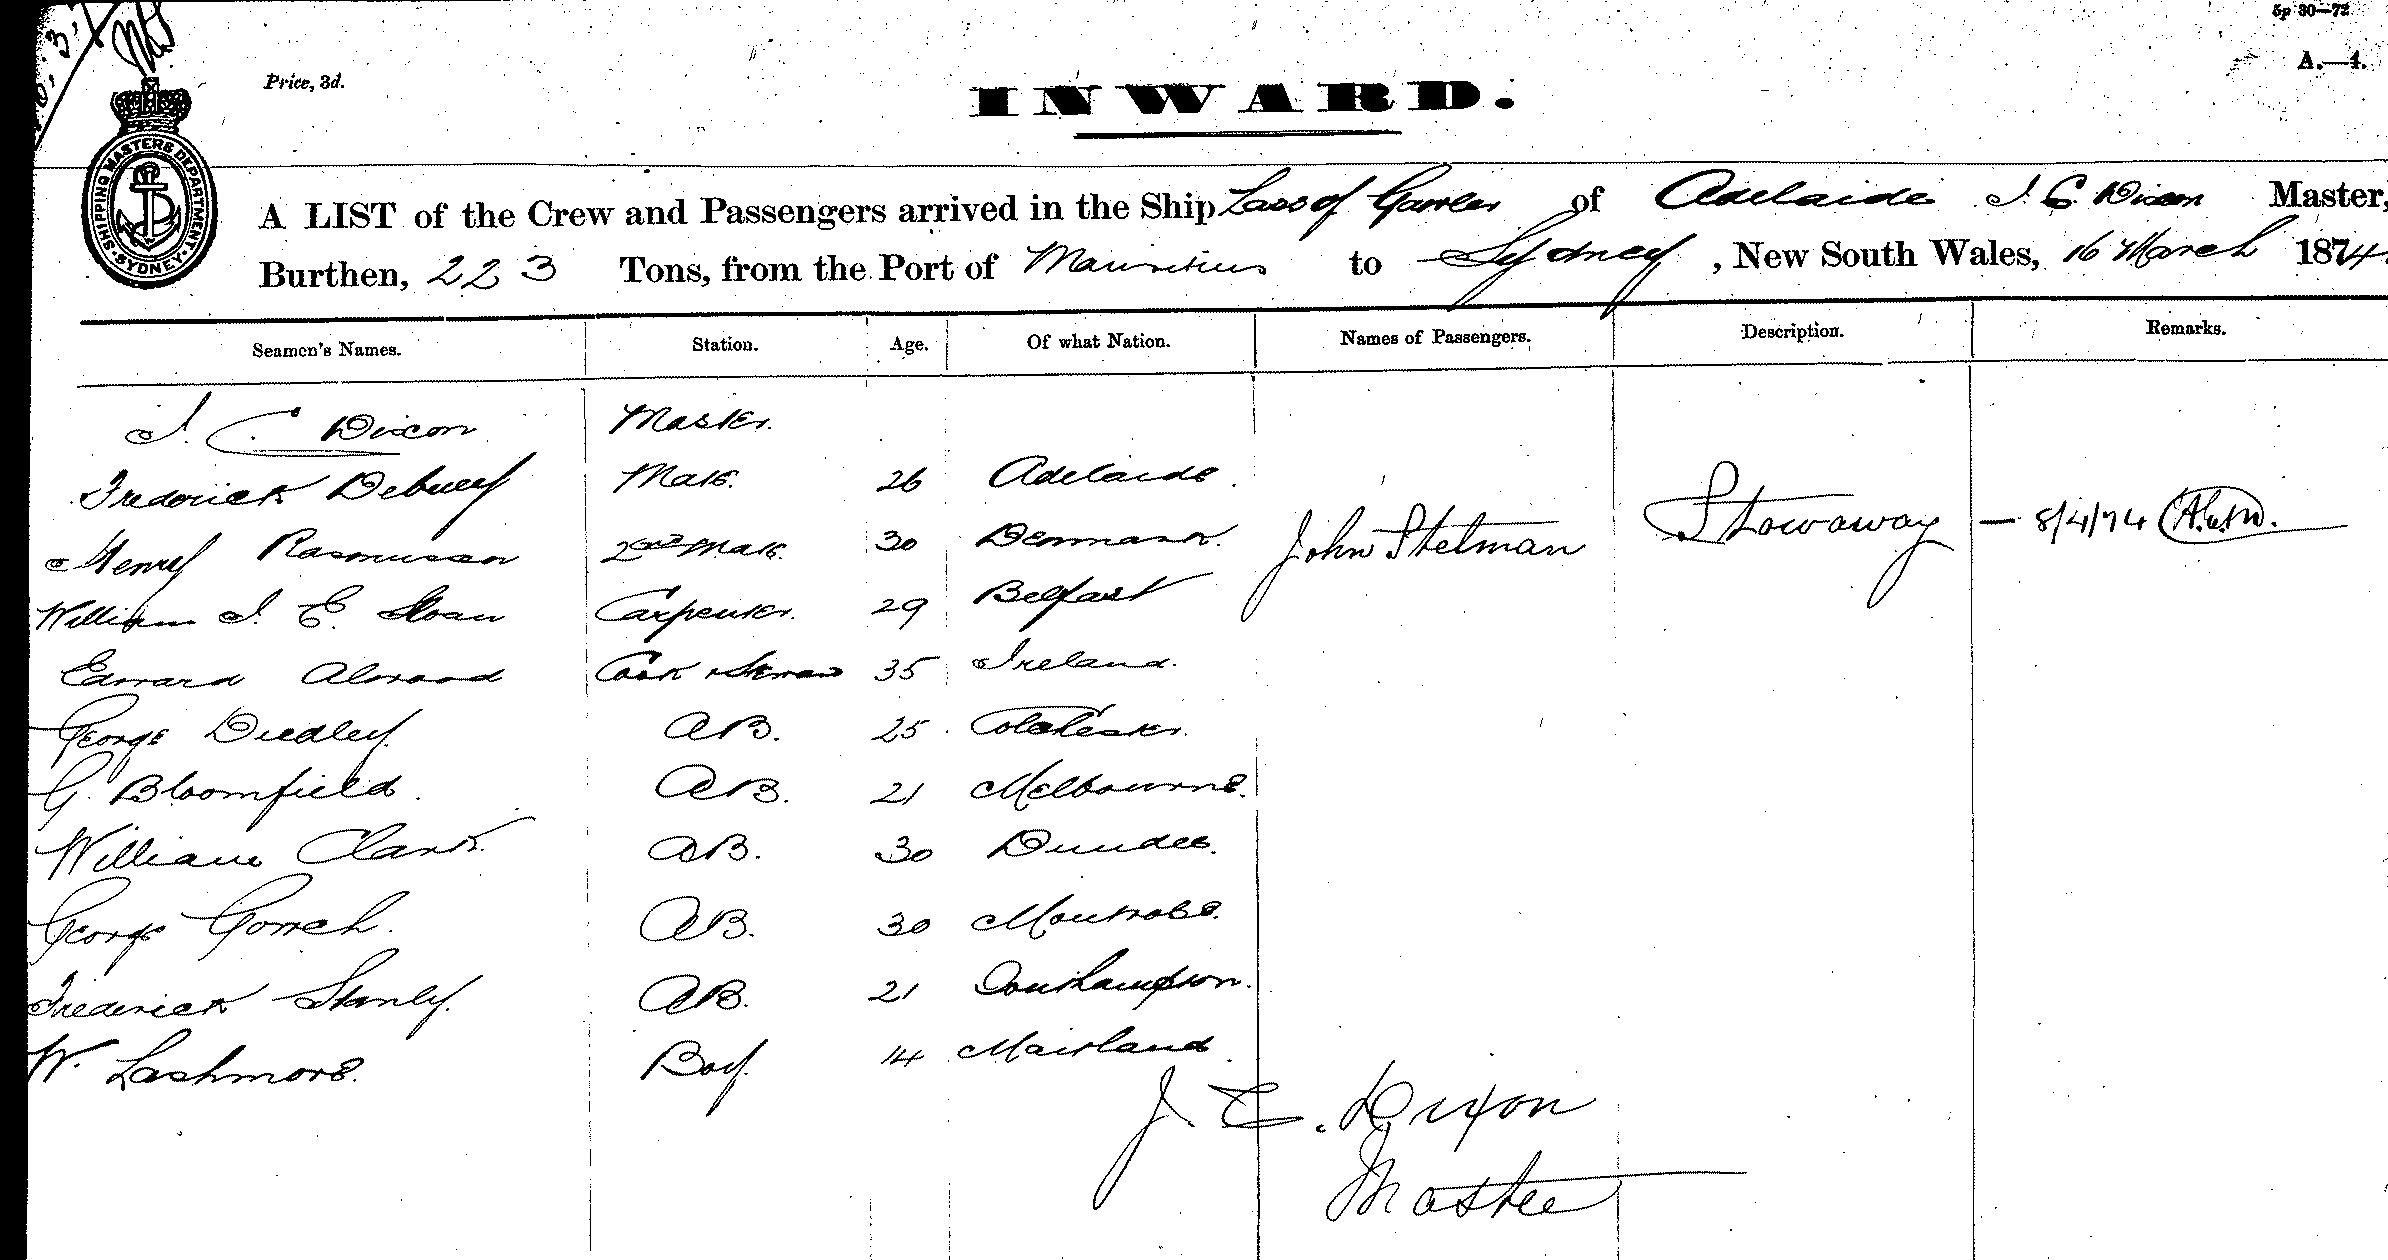 5p 30—72
A.—4.
Price, 3d.
INWARD.
SHIPPING MASTERS DEPARTMENT · SYDNEY ·
A LIST of the Crew and Passengers arrived in the Ship Lass of Gawler of Adelaide J. C. Dixon Master,
Burthen, 223 Tons, from the Port of Mauritius to Sydney, New South Wales, 16 March 1874.
Seamen's Names. Station. Age. Of what Nation. Names of Passengers. Description. Remarks.
J. C. Dixon Master.
Frederick Mate. 26 Adelaide.
Henry Rasmussen 2nd Mate. 30 Denmark. John Stelman Stowaway — 8/4/74
William J. E. Sloan Carpenter. 29 Belfast
Edward Cook & Steward 35 Ireland.
George Dudley. AB. 25 Colchester.
G. Bloomfield. AB. 21 Melbourne.
William Clark. AB. 30 Dundee.
George AB. 30 Montrose.
Frederick Stanley. AB. 21 Southampton.
W. Lashmore. Boy. 14 Maitland
J. C. Dixon
Master